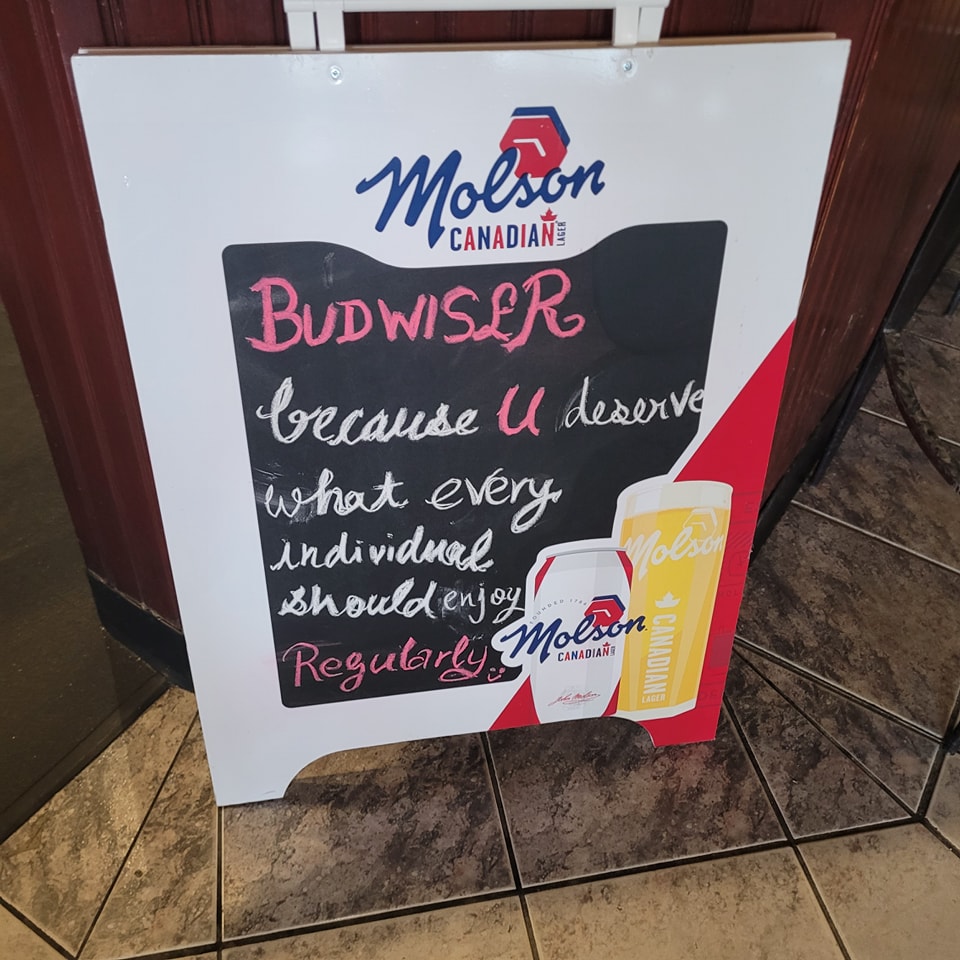 Molson
CANADIAN LAGER
BUDWISER
because U deserve
what every
individual
should enjoy
Regularly
Molson
CANADIAN
LAGER
Molson
CANADIAN